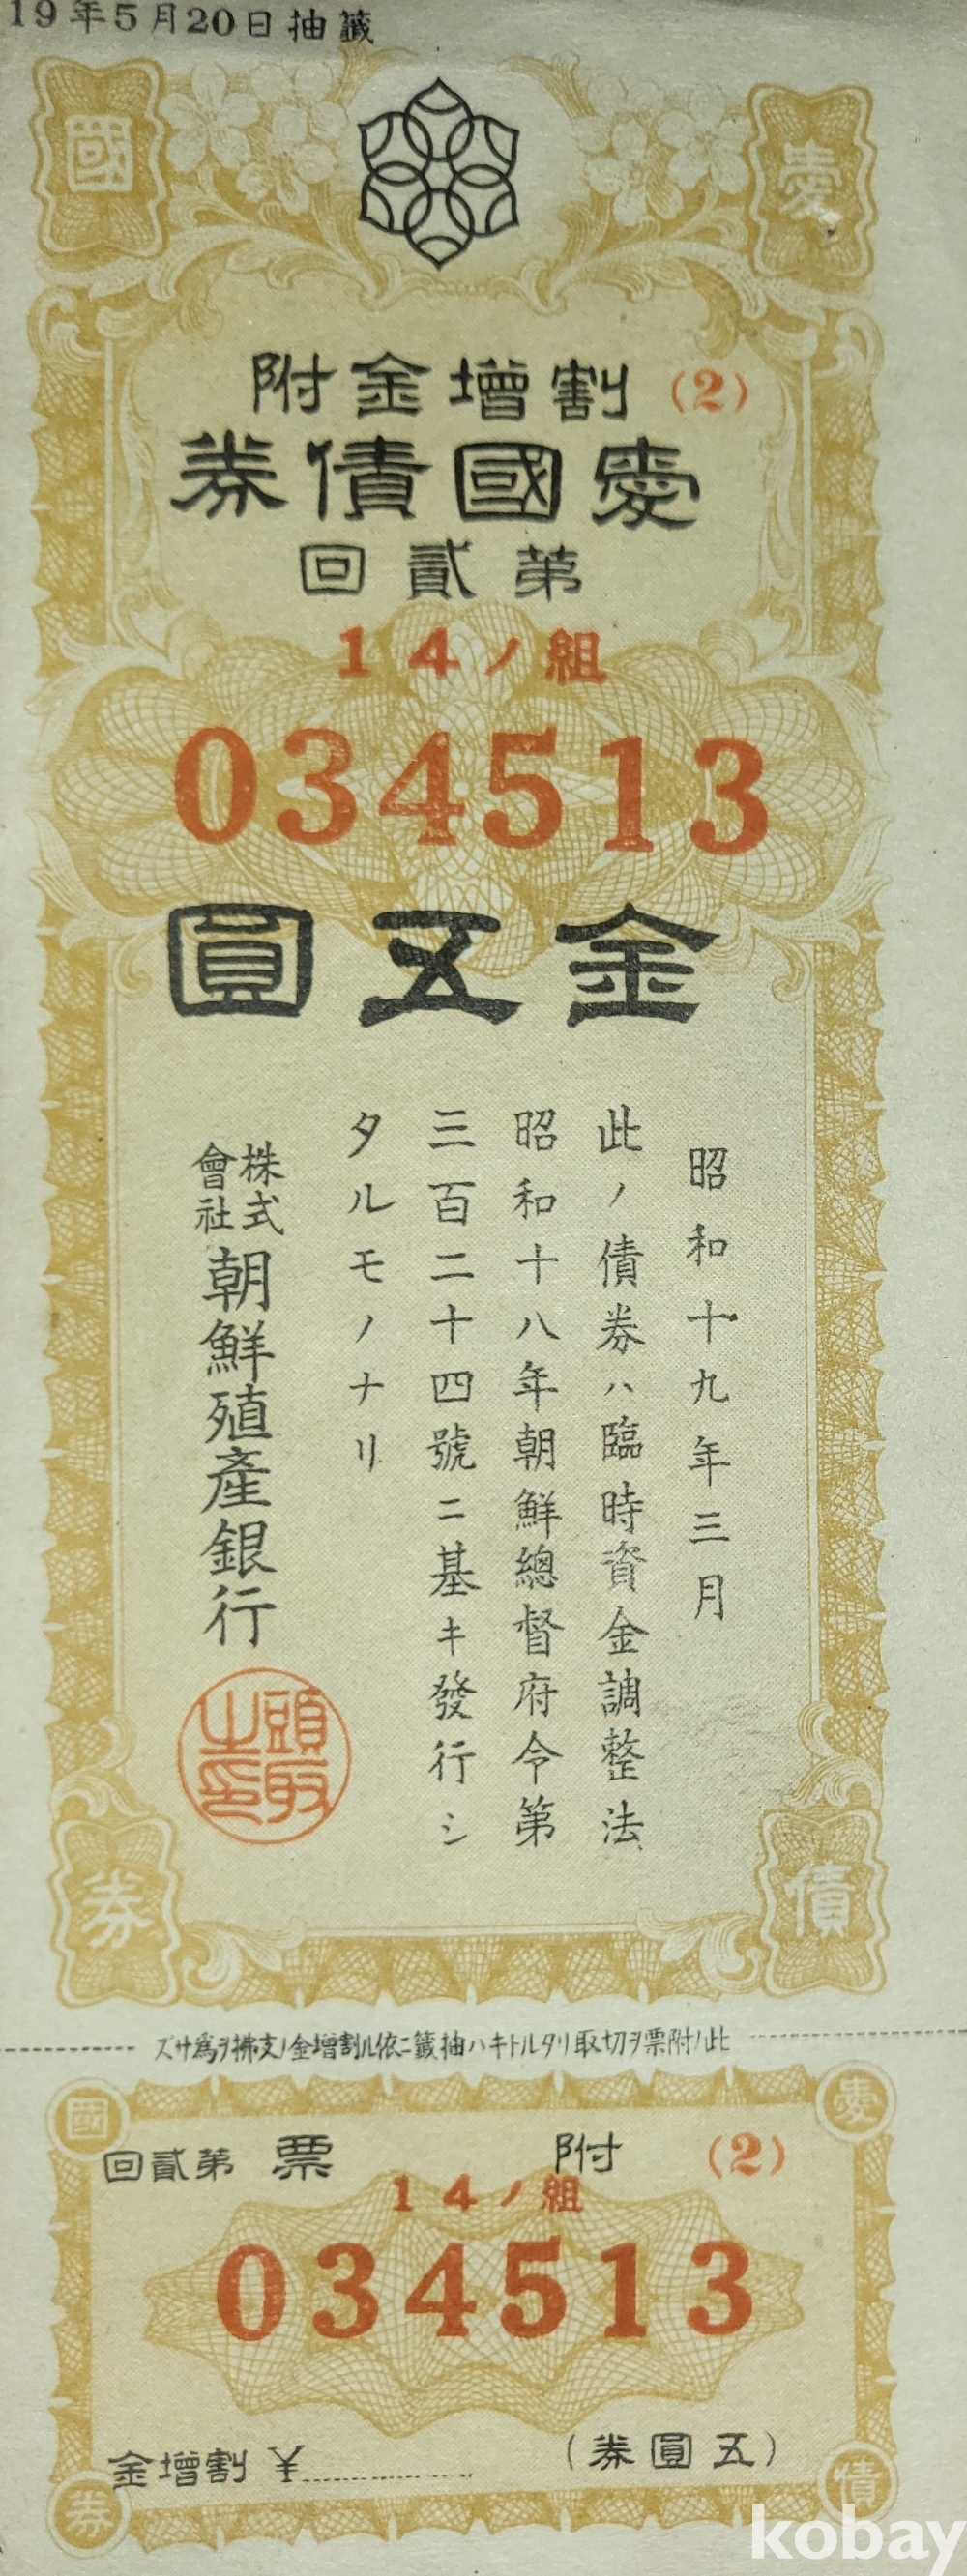 19年5月20日抽籤
愛國
割增金附 (2)
愛國債券
第貳回
14ノ組
034513
金五圓
昭和十九年三月
此ノ債券ハ臨時資金調整法
昭和十八年朝鮮總督府令第
三百二十四號ニ基キ發行シ
タルモノナリ
株式會社朝鮮殖產銀行
頭取之印
債券
此ノ附票ヲ切取リタルトキハ抽籤ニ依ル割增金ノ支拂ヲ爲サズ
愛國
(2) 附票 第貳回
14ノ組
034513
(五圓券)
割增金 ¥
債券
kobay